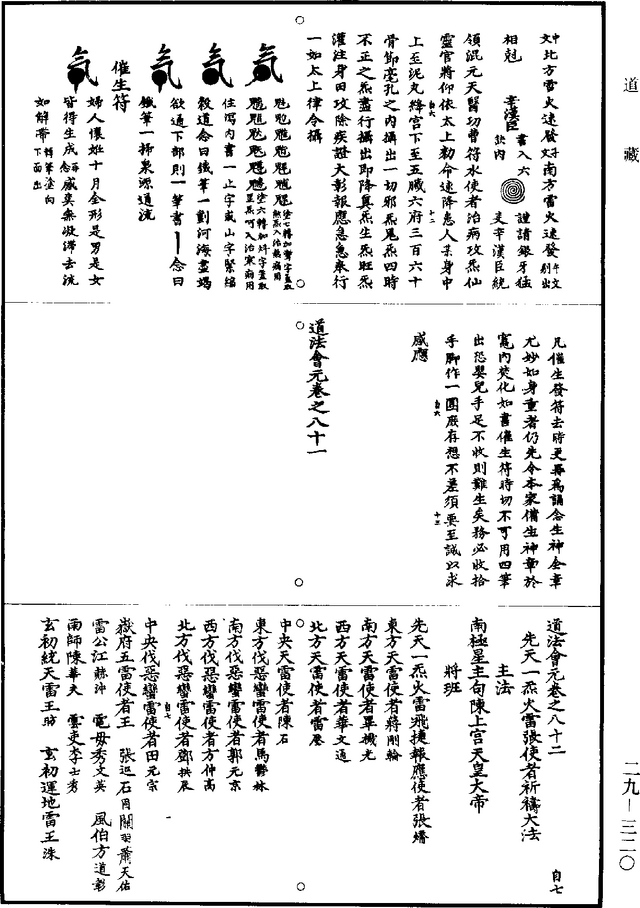 道藏
中文北方雷火速發子文南方雷火速發午文別出
相尅　辛漢臣　書入六訣內　謹請銀牙猛吏辛漢臣統
領混元天醫功曹符水使者治病攻炁仙
靈官將仰依太上勑命速降患人某身中
上至泥丸絳宮下至五臟六府三百六十
骨節毫孔之內攝出一切邪炁尾炁四時
不正之炁盡行攝出即降真炁生炁旺炁
灌注身田攻除疾證大彰報應急急奉行
一如太上律令攝
氣
氣
住寫內書一止字或山字緊縮
氣
穀道念曰鐵筆一劃河海盡竭
氣
欲通下部則一筆書一念曰
鐵筆一掃泉源通流
催生符
氣
婦人懷姙十月全形是男是女
皆得生成再念威莫無凝滯去流
如解帶　轉筆塗向下面出
凡催生發符去時更要爲誦念生神金章
尤妙如身重者仍先令本家備生神章於
竈內焚化如書催生符時切不可用四筆
出恐嬰兒手足不收則難生矣務必收拾
手脚作一團庶存想不差須要至誠以求
感應
道法會元卷之八十一
自六
十二
自六
十三
道法會元卷之八十二
先天一炁火雷張使者祈禱大法
主法
南極星主句陳上宮天皇大帝
將班
先天一炁火雷飛捷報應使者張
東方天雷使者蔣剛輪
南方天雷使者畢機光
西方天雷使者華文通
北方天雷使者雷
中央天雷使者陳石
東方伐惡蠻雷使者馬鬱林
南方伐惡蠻雷使者郭元京
西方伐惡蠻雷使者方仲高
北方伐惡蠻雷使者鄧拱辰
中央伐惡蠻雷使者田元宗
嶽府五雷使者王　張巡石　關羽蕭天佑
雷公江赫沖　電母秀文英　風伯方道彰
雨師陳華夫　雲吏李士秀
玄初統天雷王　玄初運地雷王洙
自七
二九一三二〇
自七